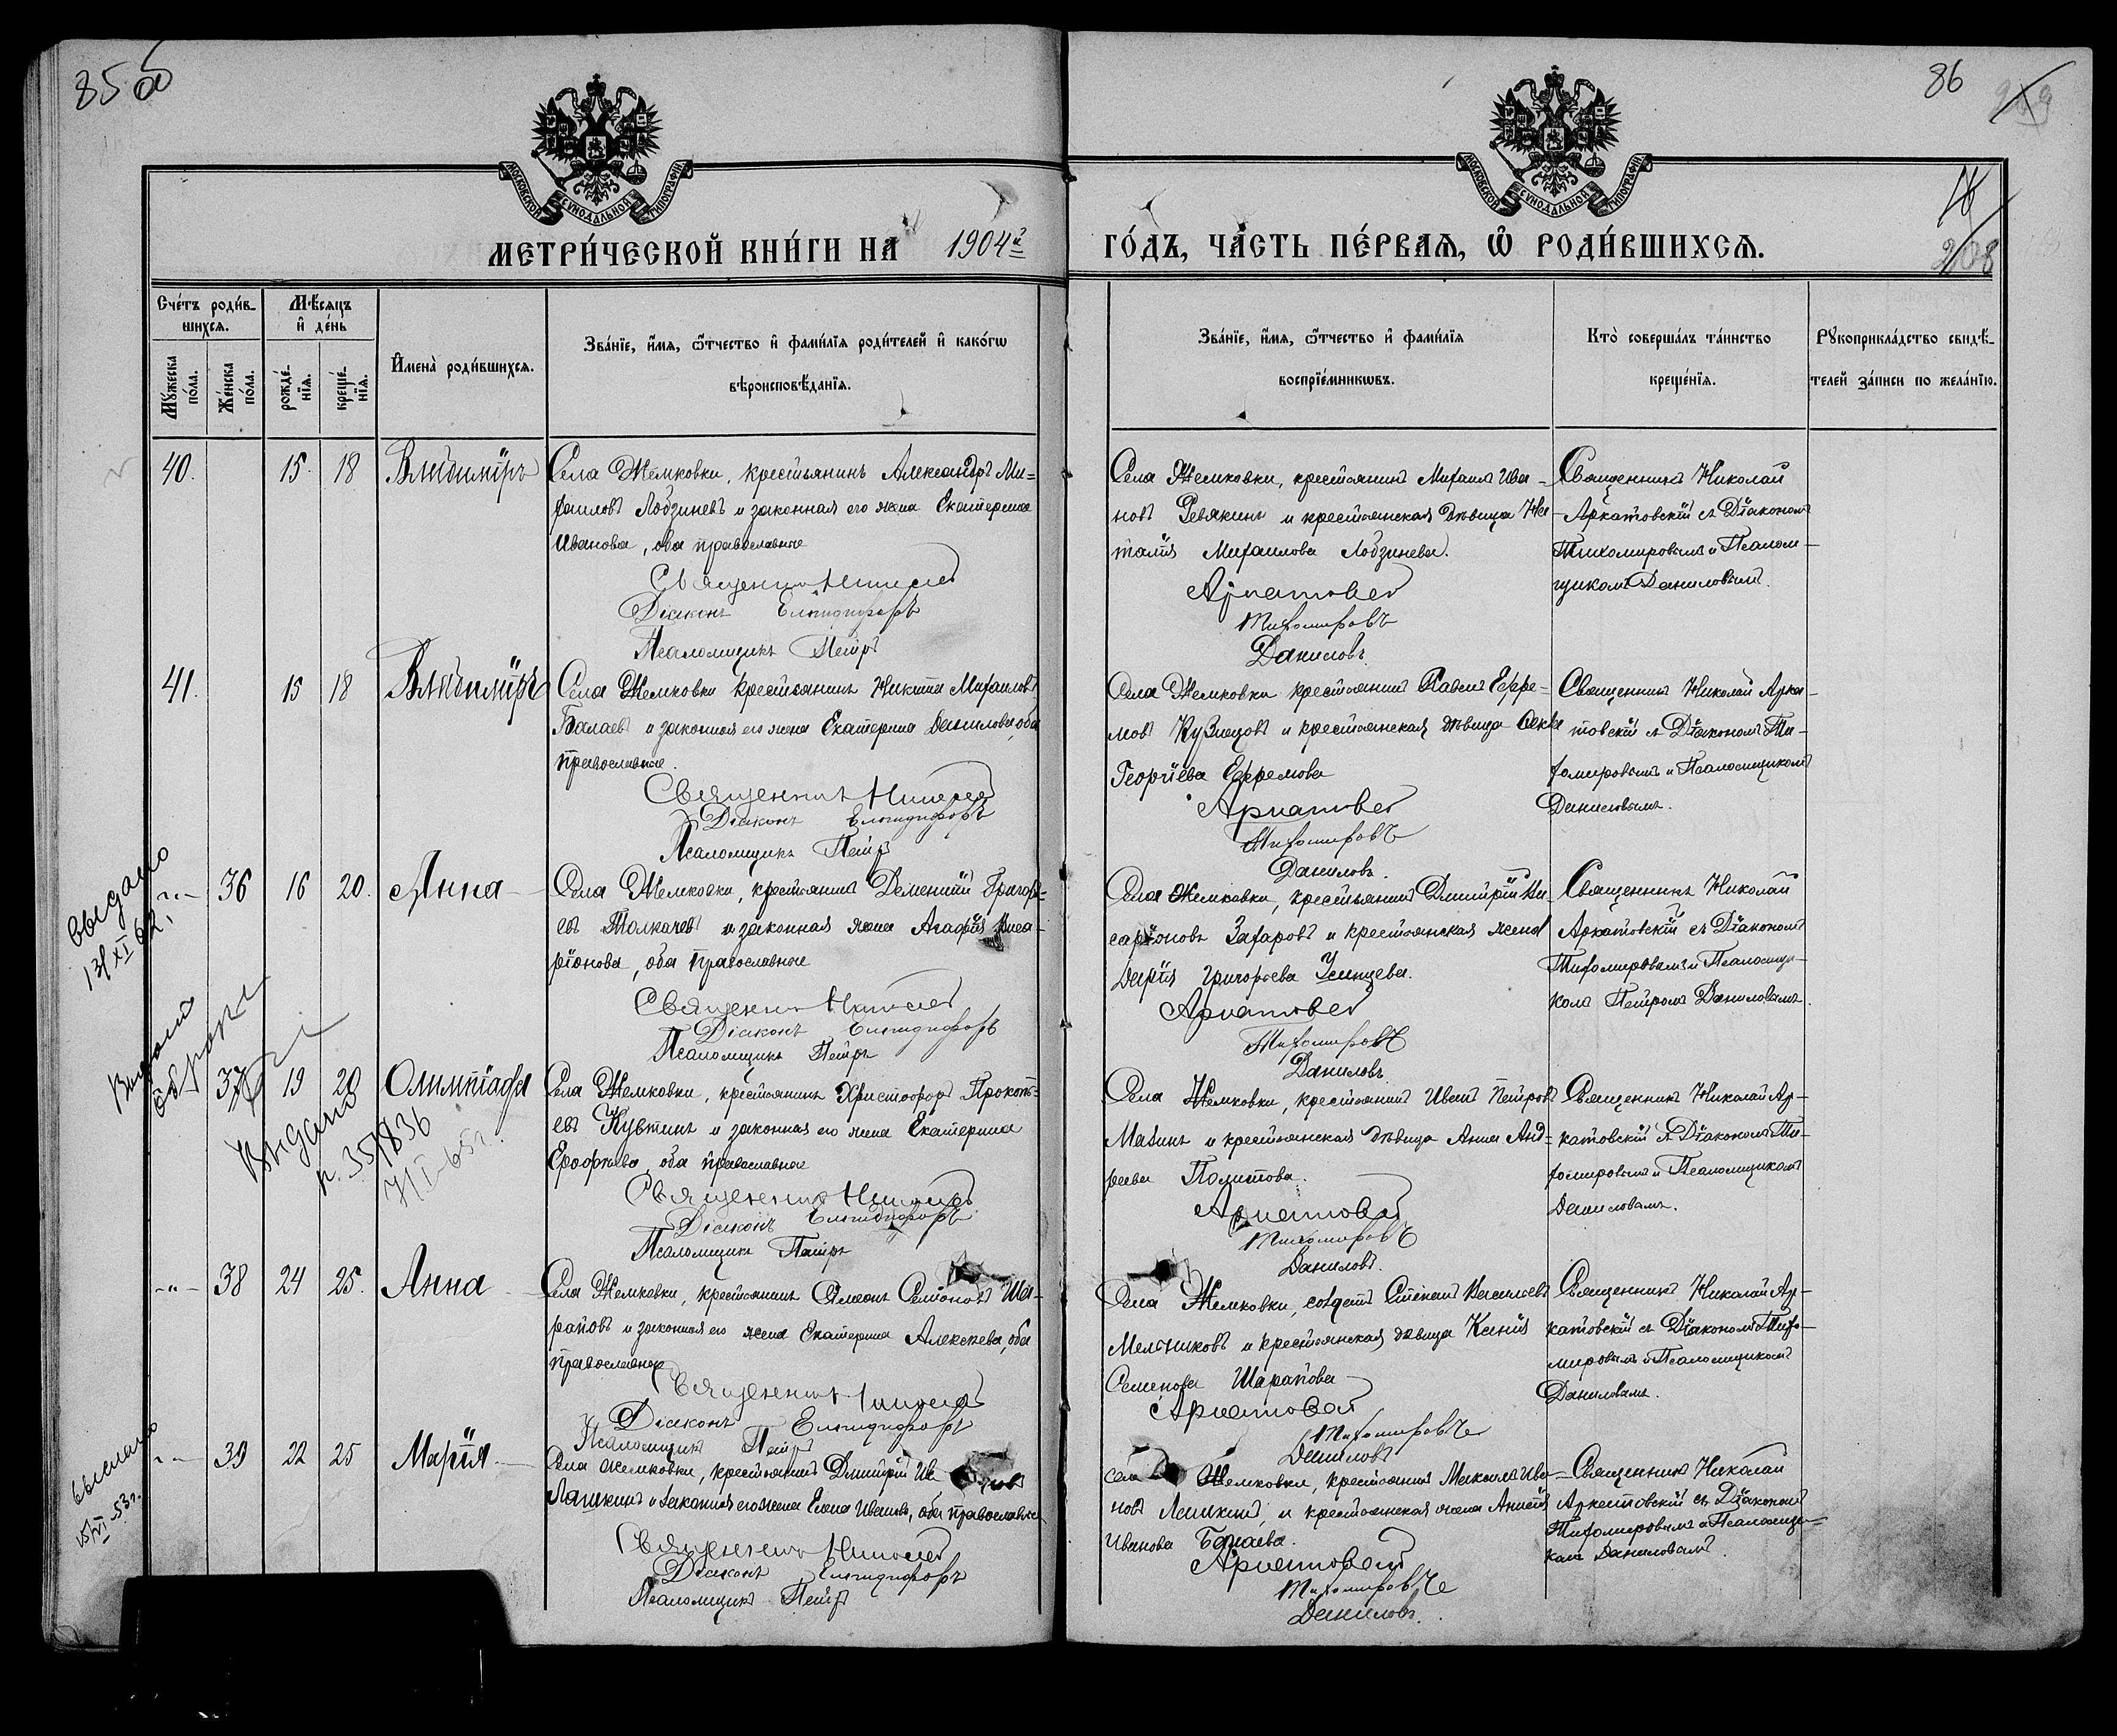 85 об
86
МОСКОВСКОЙ СѴНОДАЛЬНОЙ ТИПОГРАФІИ
МОСКОВСКОЙ СѴНОДАЛЬНОЙ ТИПОГРАФІИ
208
МЕТРИ́ЧЕСКОЙ КНИ́ГИ НА 1904й
ГО́ДЪ, ЧА́СТЬ ПЕ́РВАЯ, Ѡ РОДИ́ВШИХСЯ.
Сче́тъ роди́в-
шихся.
Мѣ́сяцъ
и де́нь
Мꙋ́жеска по́ла.
Же́нска по́ла.
рожде́-
нїя.
креще́-
нїя.
Имена̀ роди́вшихся.
Зва́нїе, и́мя, ѻ́тчество и фами́лїя роди́телей и како́гѡ
вѣроисповѣ́данїя.
Зва́нїе, и́мя, ѻ́тчество и фами́лїя
воспрїе́мникѡвъ.
Кто̀ соверша́лъ та́инство
креще́нїя.
Рꙋкоприкла́дство свидѣ́-
телей за́писи по жела́нїю.
40. 15. 18 Владиміръ
Села Жемковки, крестьянинъ Александръ Ми-
хаиловъ Лобзиневъ и законная его жена Екатерина
Иванова, оба православные
Священникъ Николай
Діаконъ Елпидифоръ
Псаломщикъ Петръ
Села Жемковки, крестьянинъ Михаилъ Ива-
новъ Ревякинъ и крестьянская дѣвица На-
талія Михаилова Лобзинева.
Аркатовскій
Тихомировъ
Даниловъ
Священникъ Николай
Аркатовскій съ Діакономъ
Тихомировымъ и Псалом-
щикомъ Даниловымъ.
41. 15 18 Владиміръ
Села Жемковки крестьянинъ Никита Михаиловъ
Балаевъ и законная его жена Екатерина Данилова, оба
православные.
Священникъ Николай
Діаконъ Елпидифоръ
Псаломщикъ Петръ
Села Жемковки крестьянинъ Павелъ Ефре-
мовъ Кузнецовъ и крестьянская дѣвица
Георгіева Ефремова
Аркатовскій
Тихомировъ
Даниловъ.
Священникъ Николай Арка-
товскій съ Діакономъ Ти-
хомировымъ и Псаломщикомъ
Даниловымъ.
выдано
13/XI 62.
-"- 36 16 20. Анна
Села Жемковки, крестьянинъ Дементій Григорь-
евъ Толкачевъ и законная жена Агафія Висса-
ріонова, оба православные
Священникъ Николай
Діаконъ Елпидифоръ
Псаломщикъ Петръ
Села Жемковки, крестьянинъ Димитрій Ви-
саріоновъ Захаровъ и крестьянская жена
Дарія Григорьева
Аркатовскій
Тихомировъ
Даниловъ
Священникъ Николай
Аркатовскій съ Діакономъ
Тихомировымъ и Псаломщи-
комъ Петромъ Даниловымъ.
37 19 20 Олимпіада
Выдано
п. 351836
7/I-65г.
Села Жемковки, крестьянинъ Христофоръ Прокопь-
евъ и законная его жена Екатерина
Ерофѣева, оба православные
Священникъ Николай
Діаконъ Елпидифоръ
Псаломщикъ Петръ
Села Жемковки, крестьянинъ Иванъ Петровъ
и крестьянская дѣвица Анна Анд-
реева
Аркатовскій
Тихомировъ
Даниловъ.
Священникъ Николай Ар-
катовскій съ Діакономъ Ти-
хомировымъ и Псаломщикомъ
Даниловымъ.
-"- 38 24 25. Анна
Села Жемковки, крестьянинъ Симеонъ Семеновъ Ша-
раповъ и законная его жена Екатерина Алексѣева, оба
православные
Священникъ Николай
Діаконъ Елпидифоръ
Псаломщикъ Петръ
Села Жемковки, солдатъ Стефанъ Васильевъ
Мельниковъ и крестьянская дѣвица Ксенія
Семенова Шарапова
Аркатовскій
Тихомировъ
Даниловъ
Священникъ Николай Ар-
катовскій съ Діакономъ Тихо-
мировымъ и Псаломщикомъ
Даниловымъ.
выслано
15/VI-53г.
39 22 25 Марія
Села Жемковки, крестьянинъ Димитрій Ив
Лашкинъ и законная его жена Елена Иванова, оба православные
Священникъ Николай
Діаконъ Елпидифоръ
Псаломщикъ Петръ
Села Жемковки, крестьянинъ Михаилъ Ива-
новъ Лашкинъ, и крестьянская жена
Иванова Балаева.
Аркатовскій
Тихомировъ
Даниловъ.
Священникъ Николай
Аркатовскій съ Діакономъ
Тихомировымъ и Псаломщи-
комъ Даниловымъ.